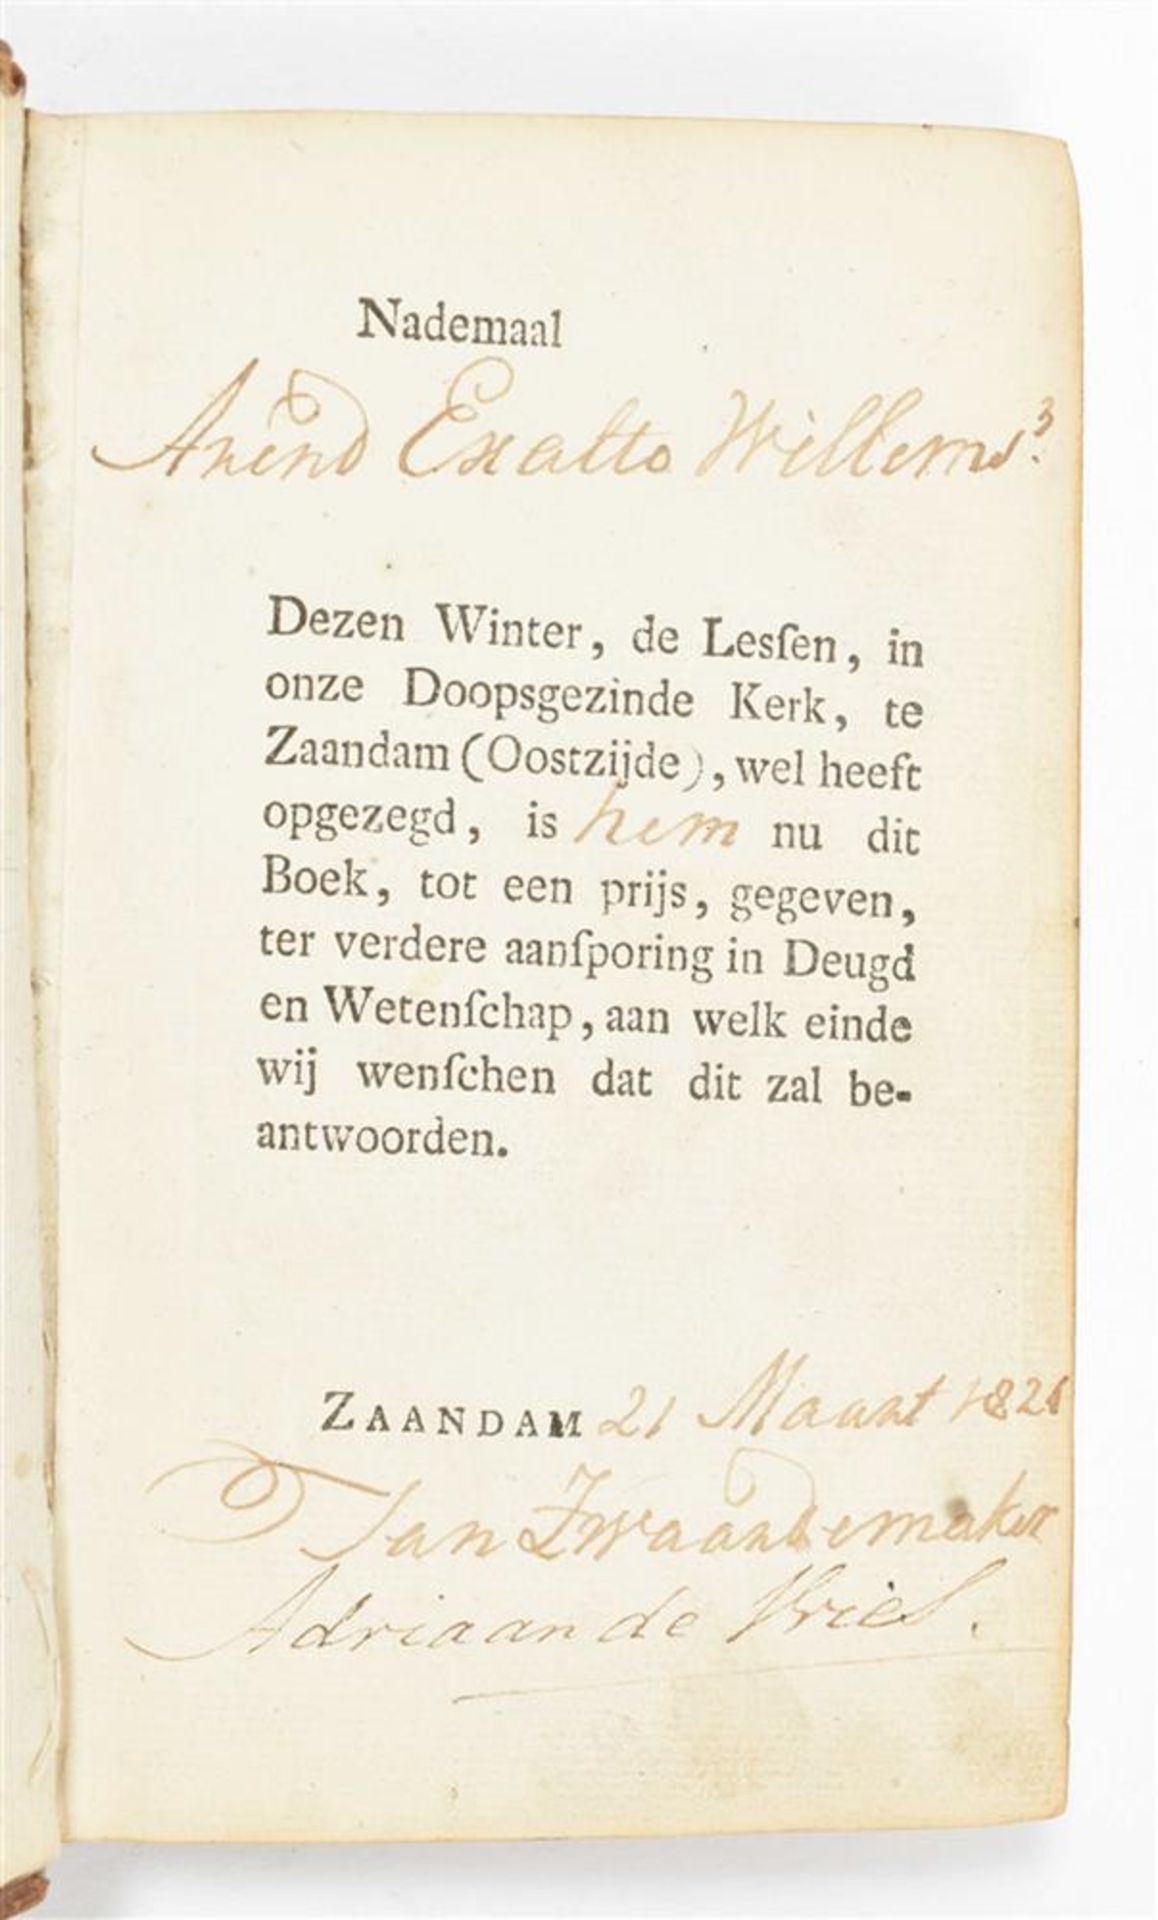 Nademaal
Arend Exalto Willems?
Dezen Winter, de Lesſen, in
onze Doopsgezinde Kerk, te
Zaandam (Oostzijde), wel heeft
opgezegd, is hem nu dit
Boek, tot een prijs, gegeven,
ter verdere aanſporing in Deugd
en Wetenſchap, aan welk einde
wij wenſchen dat dit zal be-
antwoorden.
ZAANDAM 21 Maart
Jan Zwaardemaker
Adriaan de Vries.